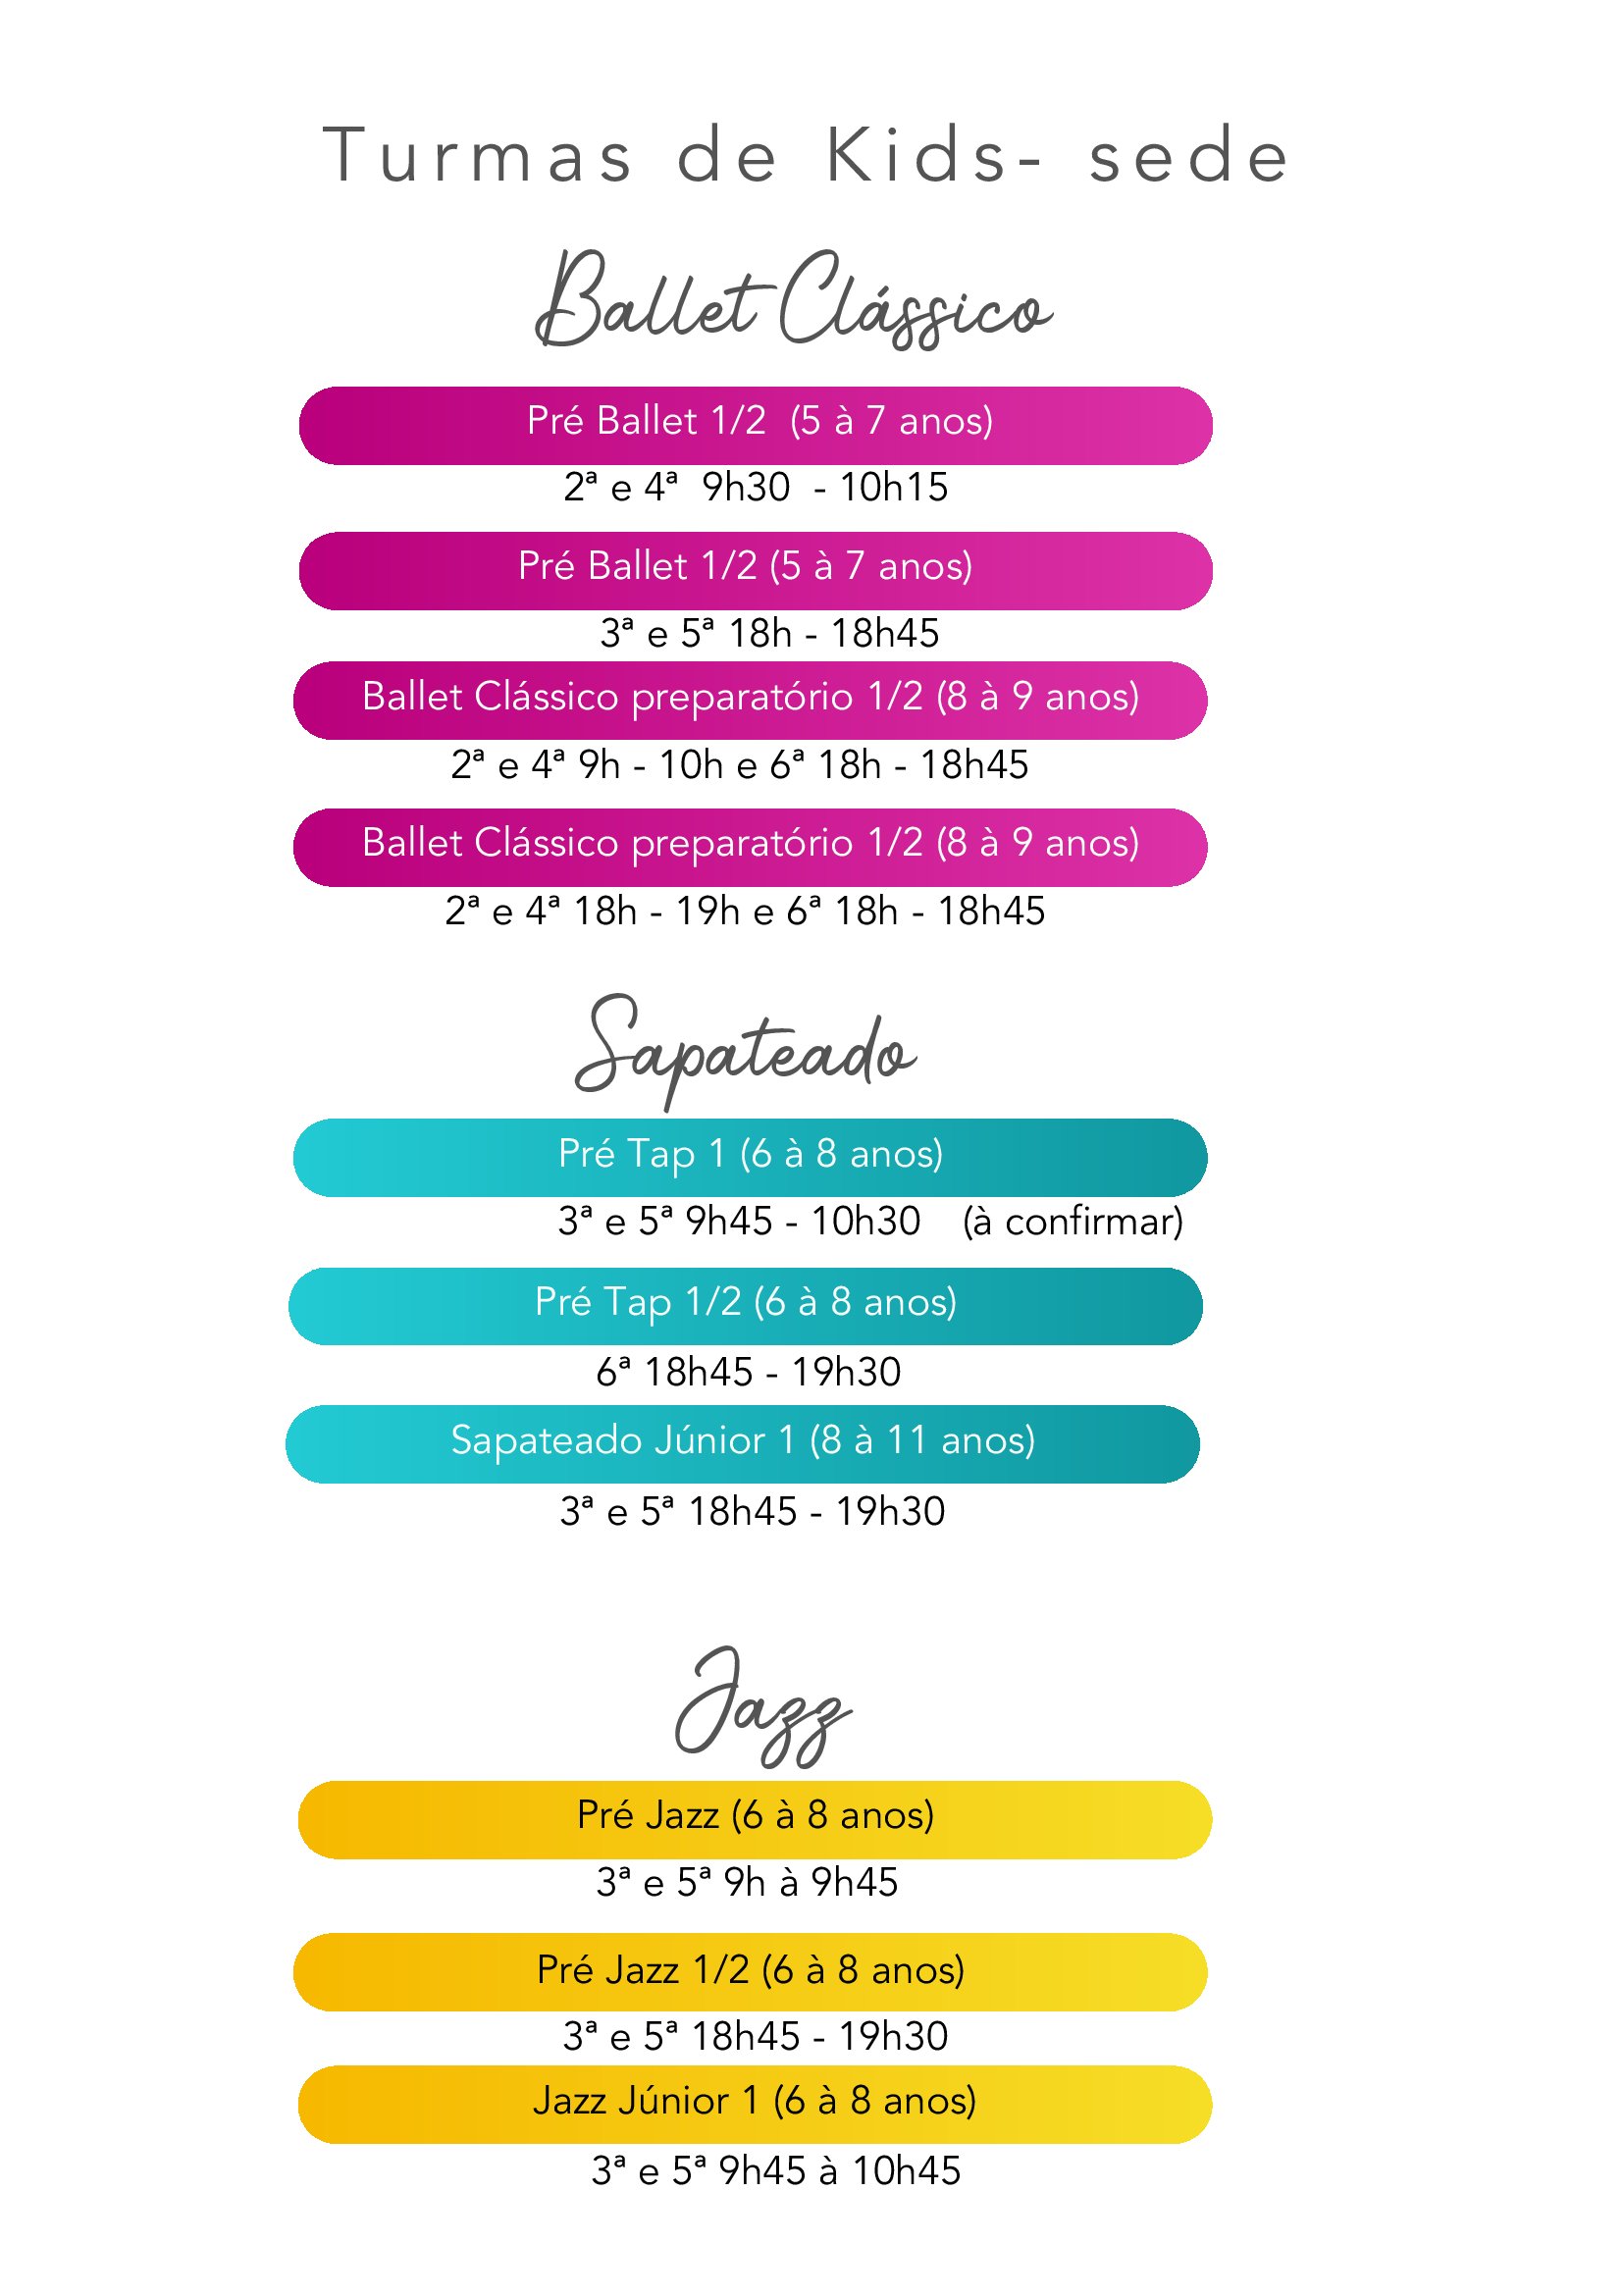 Turmas de Kids- sede
Ballet Clássico
Pré Ballet 1/2 (5 à 7 anos)
2ª e 4ª 9h30 - 10h15
Pré Ballet 1/2 (5 à 7 anos)
3ª e 5ª 18h - 18h45
Ballet Clássico preparatório 1/2 (8 à 9 anos)
2ª e 4ª 9h - 10h e 6ª 18h - 18h45
Ballet Clássico preparatório 1/2 (8 à 9 anos)
2ª e 4ª 18h - 19h e 6ª 18h - 18h45
Sapateado
Pré Tap 1 (6 à 8 anos)
3ª e 5ª 9h45 - 10h30 (à confirmar)
Pré Tap 1/2 (6 à 8 anos)
6ª 18h45 - 19h30
Sapateado Júnior 1 (8 à 11 anos)
3ª e 5ª 18h45 - 19h30
Jazz
Pré Jazz (6 à 8 anos)
3ª e 5ª 9h à 9h45
Pré Jazz 1/2 (6 à 8 anos)
3ª e 5ª 18h45 - 19h30
Jazz Júnior 1 (6 à 8 anos)
3ª e 5ª 9h45 à 10h45